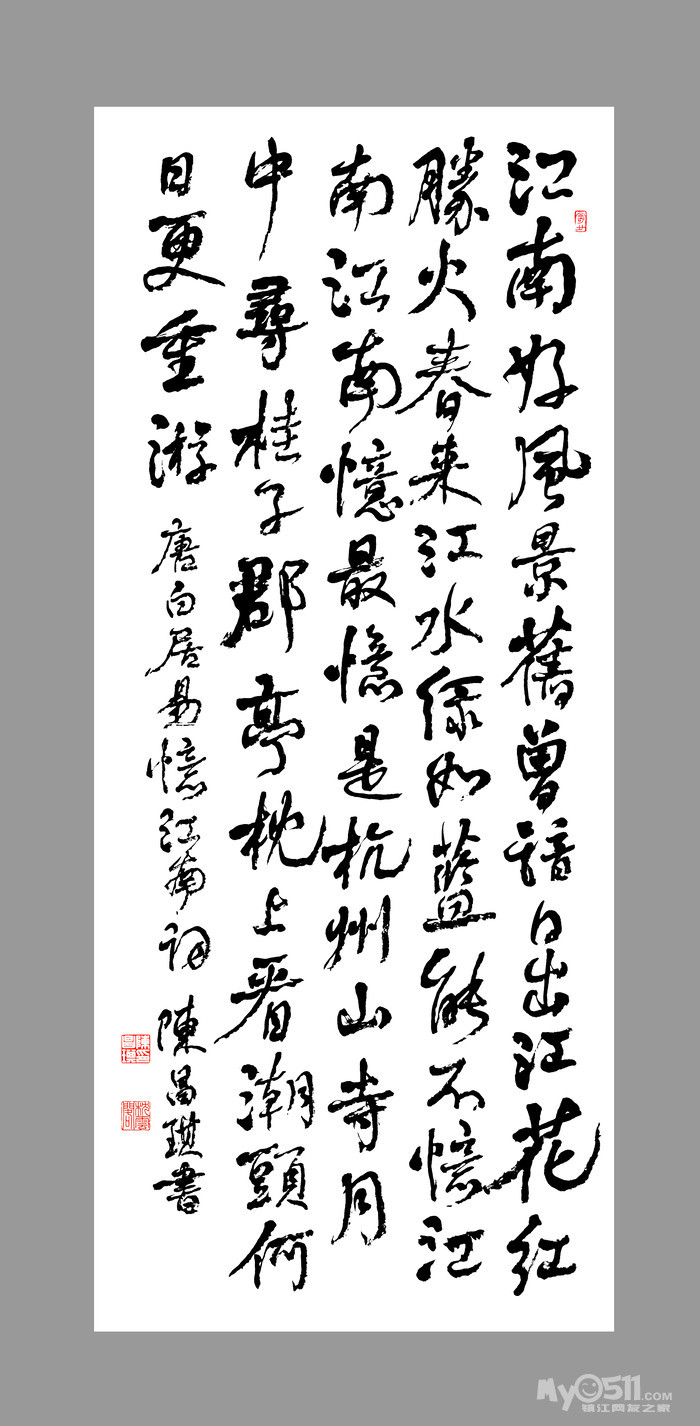 江南好風景舊曾諳日出江花紅
勝火春来江水綠如藍能不憶江
南江南憶最憶是杭州山寺月
中尋桂子郡亭枕上看潮頭何
日更重游
唐白居易憶江南詞 陳昌琪書
My0511.com
镇江网友之家